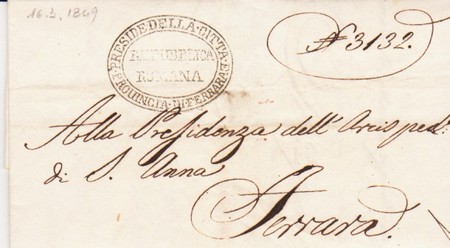 16.3.1849
PRESIDE DELLA CITTA E PROVINCIA DI FERRARA
REPUBBLICA
ROMANA
N 3132.
Alla Presidenza dell'Arcisped:
di S. Anna
Ferrara.